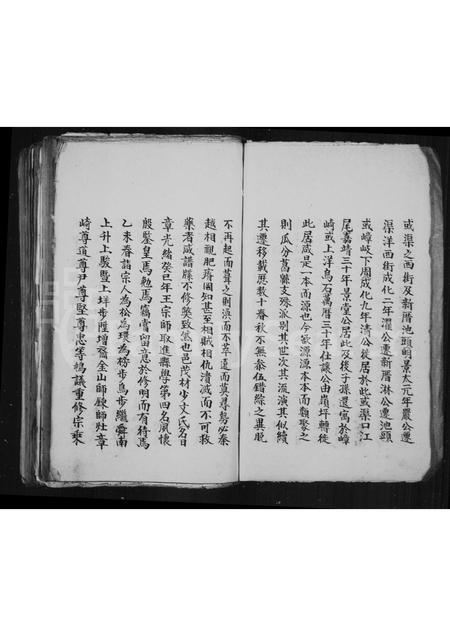 或渠之西街及新厝池頭明景太元年農公遷
渠洋西街成化二年濯公遷新厝淋公遷池頭
或嶂岐下園成化九年清公徙居於此或渠口江
尾嘉靖三十年景堂公居此及後子孫還寓於嶂
崎或上洋烏石萬曆三十年仕讓公由崩坪轉徙
此居咸是一本而源也今欲源源本本而願聚之
則瓜分葛縣支殊派別其世次其流演其似續
其遷移載歷數十春秋不無叅伍錯綜之異脫
不再起而葺之則渙而不萃遠而莫尋勢必秦
越相視肥瘠罔知甚至相賊相仇潰滅而不可救
藥者咸譜牒不修與致然也邑茂材少文氏名日
章光緒癸巳年王宗師取進縣學第四名風懷
殷鑒皇馬勉馬竊嘗留意於修明而有待馬
乙未春詣宗人為松為環為榜步鳥步繼舜南
上升上駿暨上坪步陞增喬金山師錬師灶章
崎尊道尊尹尊堅尊忠等鳩議重修宗乘